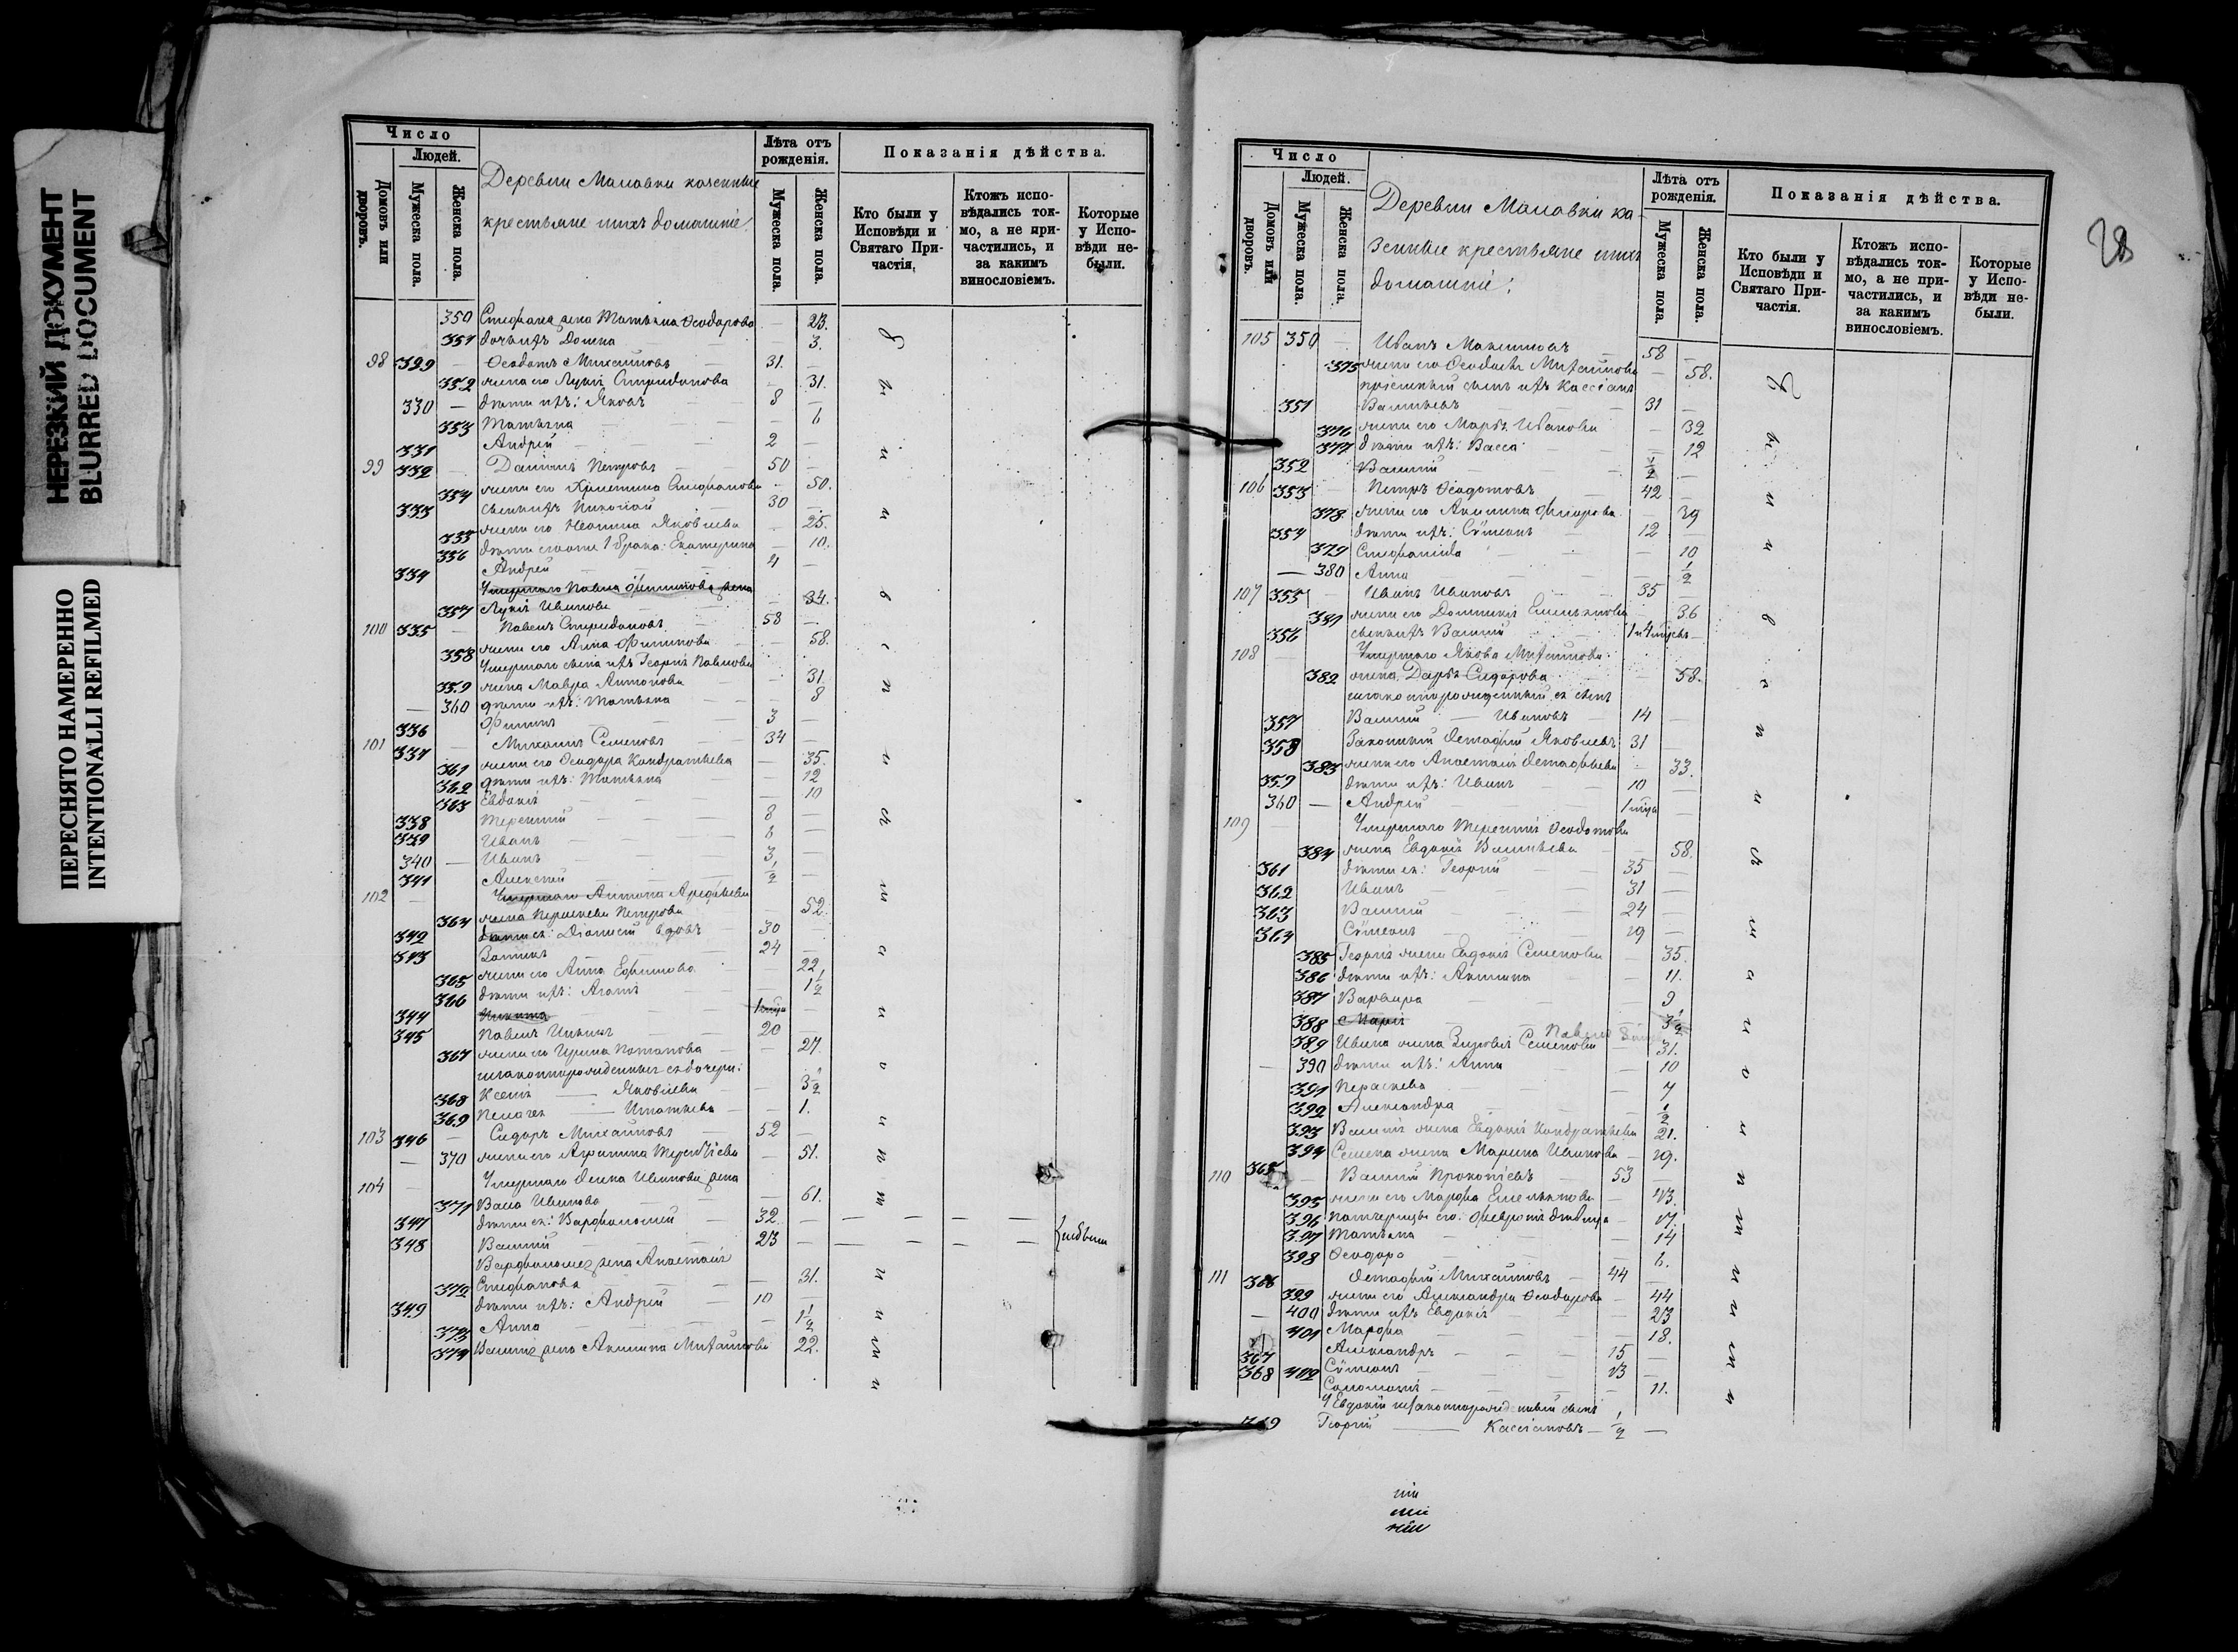 НЕРЕЗКИЙ ДОКУМЕНТ
BLURRED DOCUMENT
ПЕРЕСНЯТО НАМЕРЕННО
INTENTIONALLI REFILMED
Число
Людей.
Домовъ или дворовъ.
Мужеска пола.
Женска пола.
Деревни Малавки казенные
крестьяне и ихъ домашніе
Лѣта отъ рожденія.
Мужеска пола.
Женска пола.
Показанія дѣйства.
Кто были у Исповѣди и Святаго Причастія.
Ктожъ исповѣдались токмо, а не причастились, и за какимъ винословіемъ.
Которые у Исповѣди небыли.
350 Стефана жена Татьяна Ѳеодорова — 23.
351 дочь ихъ Домна 3.
98 329 — Ѳеодотъ Михаиловъ 31 —
352 жена его Лукія Спиридонова — 31.
330 — дѣти ихъ: Яковъ 8 —
353 Татьяна — 6
331 Андрей 2 —
99 332 — Даніилъ Петровъ 50 —
354 жена его Христина Стефанова — 50.
333 сынъ ихъ Николай 30 —
355 жена его Неонила Яковлева — 25.
356 дѣти его отъ 1 брака: Екатерина — 10.
334 Андрей 4 —
Умершаго Павла Филиппова жена
357 Лукія Иванова — 34.
100 335 — Павелъ Спиридоновъ 58 —
358 жена его Анна Филипова — 58.
Умершаго сына ихъ Георгія Павлова
359 жена Мавра Антонова — 31.
— 360 дѣти ихъ: Татьяна — 8
336 Филипъ 3 —
101 337 — Михаилъ Семеновъ 34 —
361 жена его Ѳеодора Кондратьева — 35.
362 дѣти ихъ: Татьяна — 12
363 Евдокія — 10
338 Терентій 8 —
339 Иванъ 6 —
340 — Иванъ 3 —
341 Алексѣй 1/2 —
102 — Умершаго Антона Арефьева
364 жена Параскева Петрова — 52.
342 дѣти ея: Діонисій вдовъ 30 —
343 24 —
365 жена его Анна Ефимова — 22
366 дѣти ихъ: Агаѳія — 1 1/2
344 Никита
345 Павелъ 20 —
367 жена его Ирина Потапова — 27.
незаконнорожденныя ея дочери:
368 Ксенія — Яковлева — 3 1/2
369 Пелагея — Игнатьева — 1.
103 346 — Сидоръ Михаиловъ 52 —
— 370 жена его Агрипина Терентіева — 51.
104 — Умершаго Іванова жена
371 Васса Иванова — 61.
347 дѣти ея: Варфоломей 32 —
348 Василій 23 —
Варфоломея жена Анастасія
372 Стефанова — 31.
349 дѣти ихъ: Андрей 10 —
373 Анна — 1 1/2
374 Василія жена Акилина Михаилова — 22.
28
Число
Людей.
Домовъ или дворовъ.
Мужеска пола.
Женска пола.
Деревни Малавки ка-
зенные крестьяне и ихъ
домашніе:
Лѣта отъ рожденія.
Мужеска пола.
Женска пола.
Показанія дѣйства.
Кто были у Исповѣди и Святаго Причастія.
Ктожъ исповѣдались токмо, а не причастились, и за какимъ винословіемъ.
Которые у Исповѣди небыли.
105 350 — Иванъ Максимовъ 58 —
375 жена его Ѳеодосія Михаилова — 58.
пріемный сынъ ихъ Кассіанъ
351 Васильевъ 31 —
376 жена его Марѳа Иванова — 32
377 дѣти ихъ: Васса — 12
352 Василій 1/2 —
106 353 — Петръ Ѳеодотовъ 42 —
378 жена его Акилина — 39
354 дѣти ихъ: Сѵмеонъ 12 —
379 Стефанида — 10
— 380 Анна — 1/2
107 355 Иванъ Ивановъ 35 —
381 жена его Домникія Емельянова — 36
356 сынъ ихъ Василій
108 — Умершаго Якова Михаилова
382 жена Дарья Сидорова — 58.
незаконнорожденный ея сынъ
357 Василій — Ивановъ 14 —
358 Законный Яковлевъ 31 —
383 жена его Анастасія — 33.
359 дѣти ихъ: Иванъ 10 —
360 — Андрей
109 — Умершаго Терентія Ѳеодотова
384 жена Евдокія Васильева — 58.
361 дѣти ея: Георгій 35 —
362 Иванъ 31 —
363 Василій 24 —
364 Сѵмеонъ 19 —
385 Георгія жена Евдокія Семенова — 35.
386 дѣти ихъ: Акилина — 11.
387 Варвара — 9
388 Марія — 3 1/2
389 Ивана жена Семенова — 31.
— 390 дѣти ихъ: Анна — 10
391 Параскева — 7
392 Александра — 1/2
393 Василія жена Евдокія Кондратьева — 21.
394 Семена жена Марина Иванова — 19.
110 365 — Василій Прокопіевъ 53 —
395 жена его Марѳа Емельянова — 43.
396 падчерицы его: Февронія дѣвица — 17.
397 Татьяна — 14
398 Ѳеодора — 6.
111 366 — Михаиловъ 44 —
399 жена его Александра Ѳеодорова — 44
— 400 дѣти ихъ Евдокія — 23
401 Марѳа — 18.
367 Александръ 15 —
368 402 Сѵмеонъ 13 —
Соломонія — 11.
У Евдокіи незаконнорожденный сынъ
369 Георгій — Кассіановъ — 1/2 —